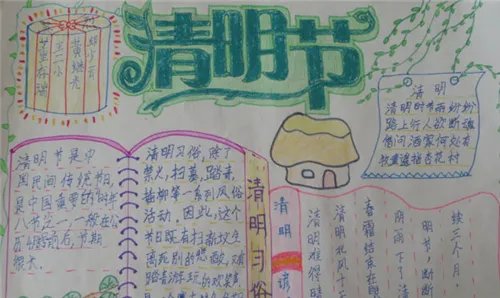 清明节
邱少云
黄继光
王二小
董存瑞
清明
清明时节雨纷纷
路上行人欲断魂
借问酒家何处有
牧童遥指杏花村
清明节是中
国民间传统节日,
是中国重要的
八节之一,一般在公
历4月5号前后,节期
很长。
清明习俗,除了
禁火、扫墓、踏青、
插柳等一系列风俗
活动。因此,这个
节日既有扫新坟生
离死别的悲酸,又有
踏青游玩的欢笑声,
清明习俗
清明谚
清明难得晴
清明北风十
春霜结束在
阴雨下了清
明节,断断
续三个月,